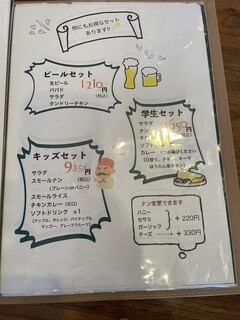 他にもお得なセット
あります!!
ビールセット
生ビール
パパド
サラダ
タンドリーチキン
1210円
(税込)
学生セット
サラダ
ナン
チキン
ソフト
カレー
(日替り、チキン、キーマ
ほうれん草チキン)
円
(税込)
キッズセット
935円
(税込)
サラダ
スモールナン
(プレーンorハニー)
スモールライス
チキンカレー(甘口)
ソフトドリンク ×1
(アップル、オレンジ、パイナップル
マンゴー、グレープフルーツ)
ナン変更できます
ハニー
セサミ
ガーリック
+220円
チーズ ……→ +330円